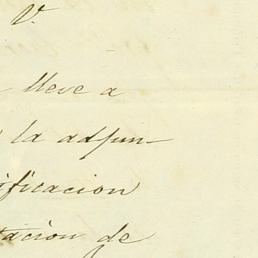 V.
lleve a
la adjun-
ificacion
tacion de